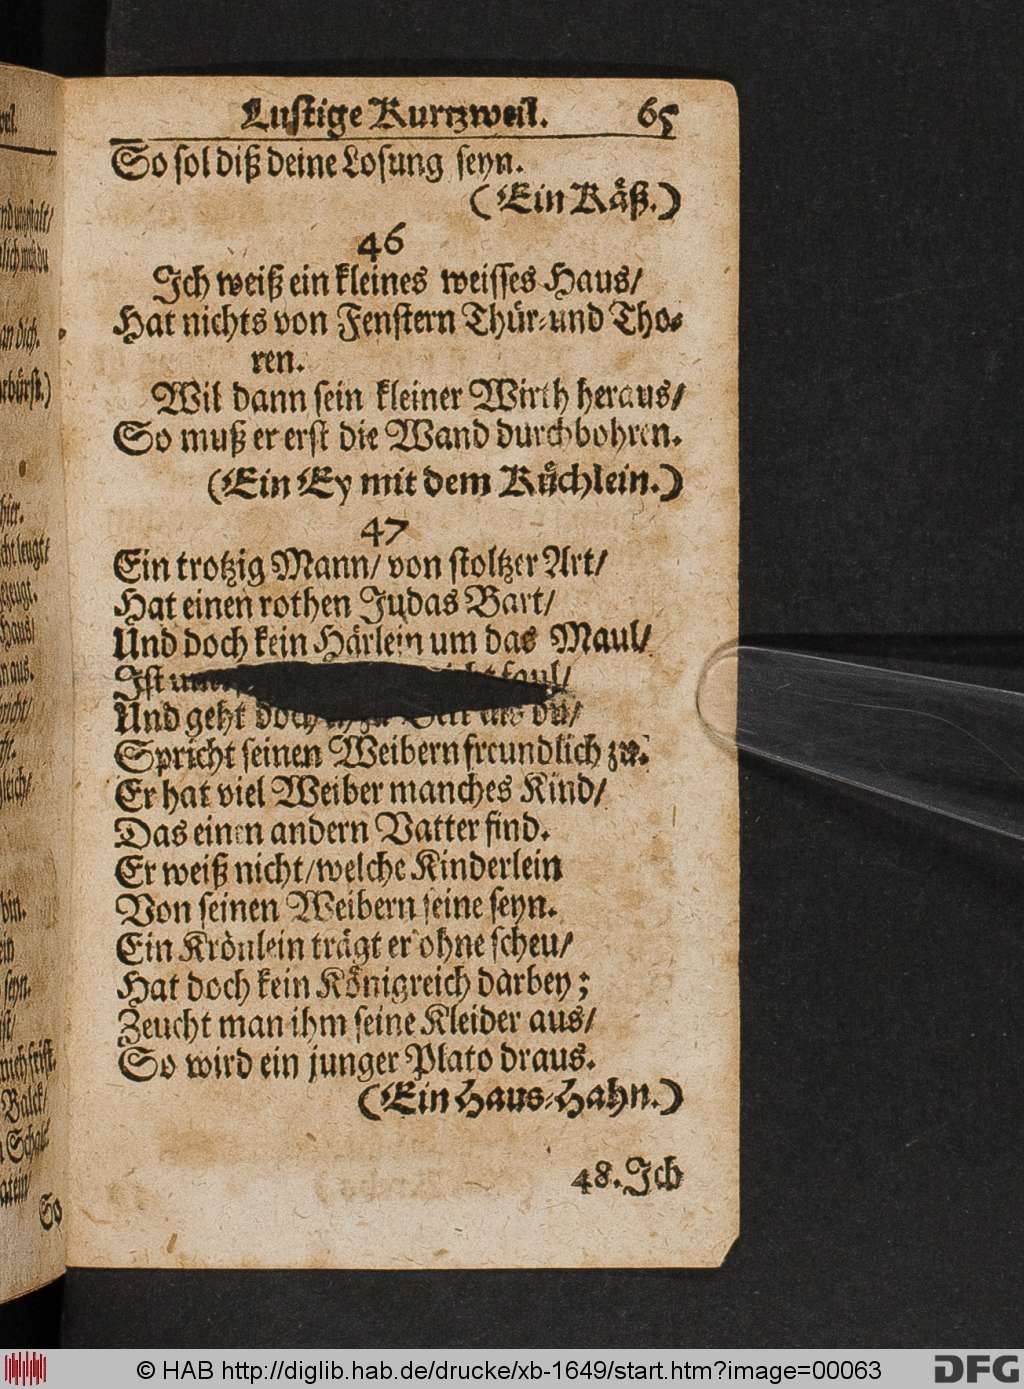 Lustige Kurtzweil. 65
So sol diß deine Losung seyn.
(Ein Käß.)
46
Ich weiß ein kleines weisses Haus/
Hat nichts von Fenstern Thür-und Tho-
ren.
Wil dann sein kleiner Wirth heraus/
So muß er erst die Wand durchbohren.
(Ein Ey mit dem Küchlein.)
47
Ein trotzig Mann/ von stoltzer Art/
Hat einen rothen Judas Bart/
Und doch kein Härlein um das Maul/
Ist nicht faul/
Und geht doch du/
Spricht seinen Weibern freundlich zu.
Er hat viel Weiber manches Kind/
Das einen andern Vatter find.
Er weiß nicht/welche Kinderlein
Von seinen Weibern seine seyn.
Ein Krönlein trägt er ohne scheu/
Hat doch kein Königreich darbey;
Zeucht man ihm seine Kleider aus/
So wird ein junger Plato draus.
(Ein Haus-Hahn.)
48. Ich
So
© HAB http://diglib.hab.de/drucke/xb-1649/start.htm?image=00063
DFG